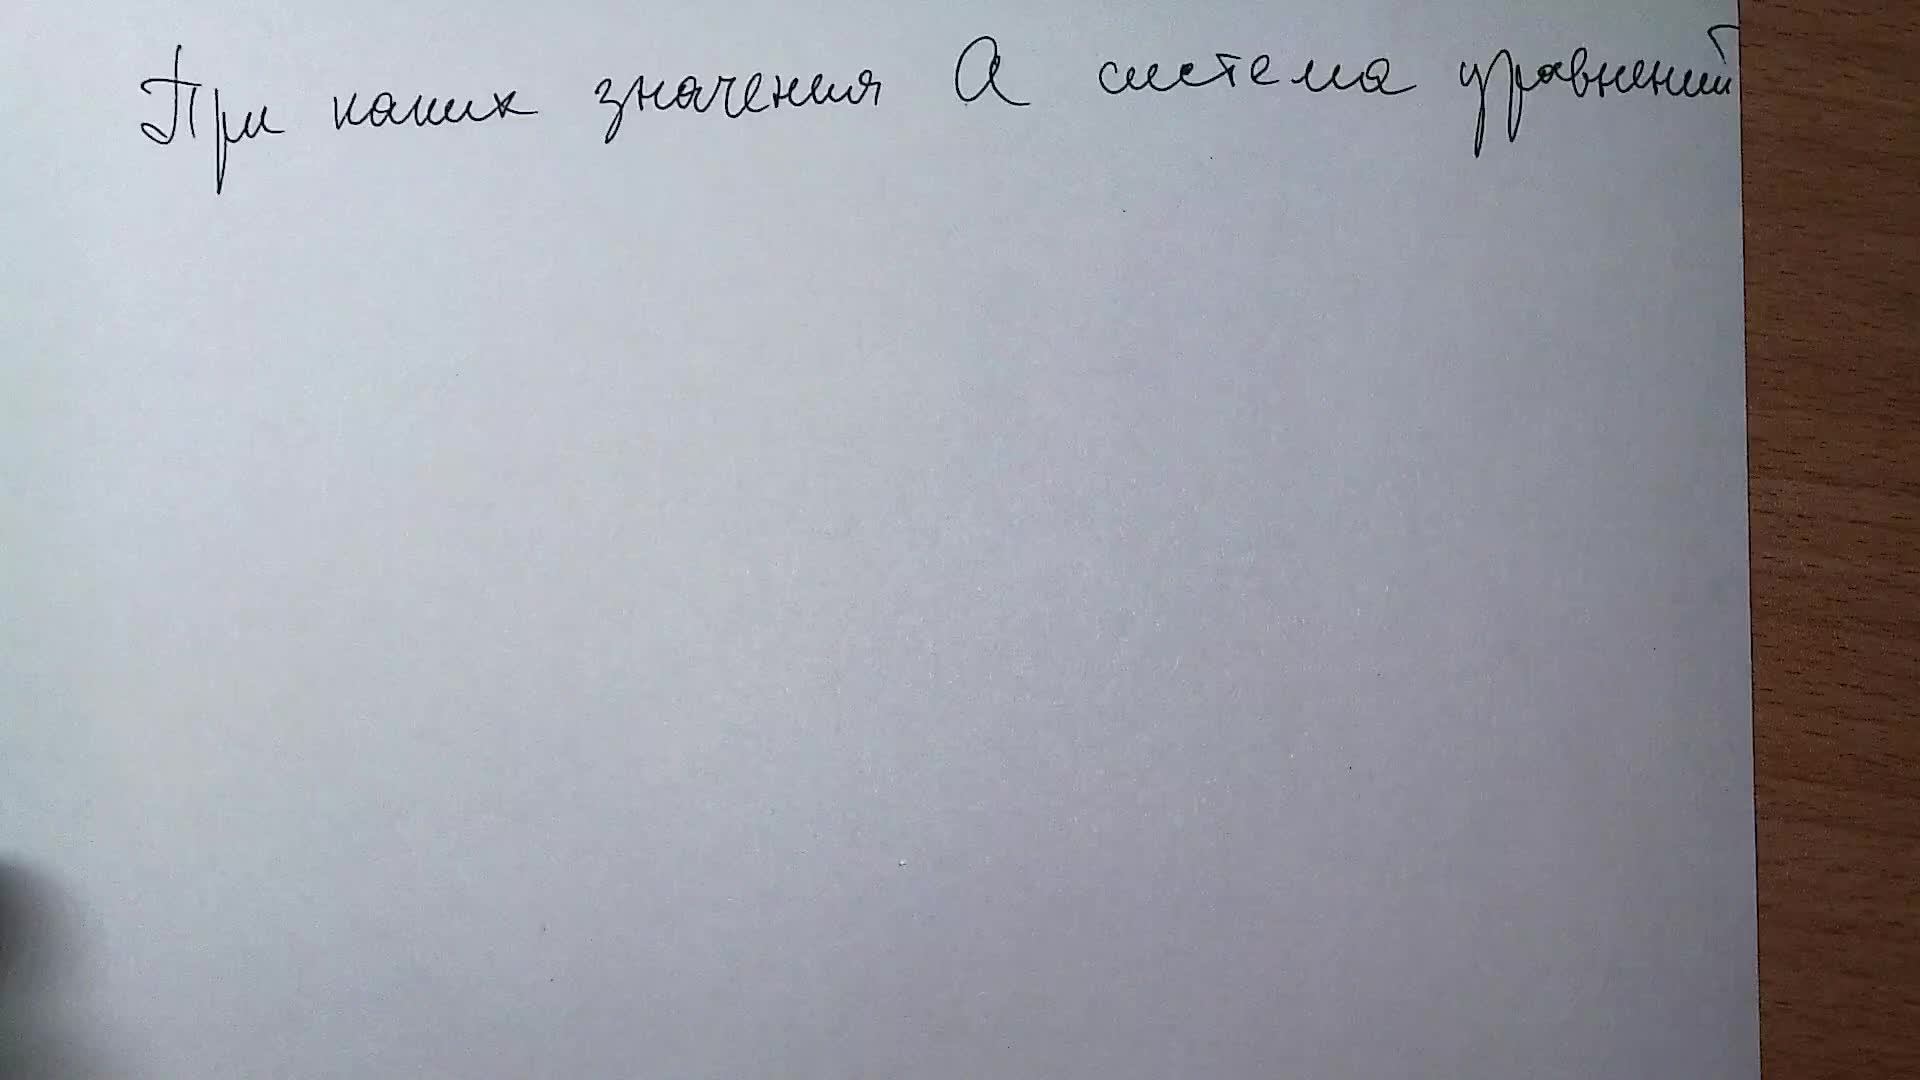 При каких значения а система уравнений